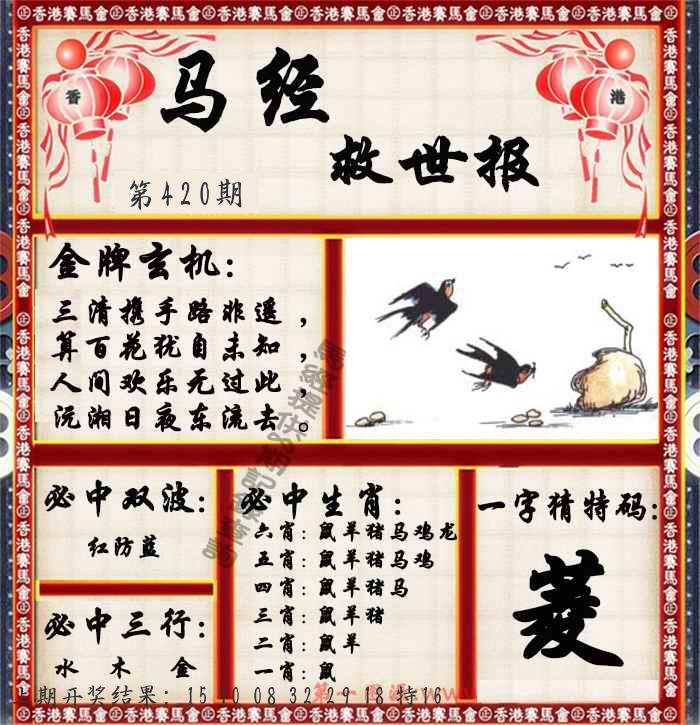 香港賽馬會 香港賽馬會 香港賽馬會 香港賽馬會 香港賽馬會 香港賽馬會 香港賽馬會
香
港
马经
救世报
第420期
金牌玄机：
三清携手路非遥，
算百花犹自未知，
人间欢乐无过此，
沅湘日夜东流去。
必中双波：
红防蓝
必中三行：
水 木 金
必中生肖：
六肖：鼠羊猪马鸡龙
五肖：鼠羊猪马鸡
四肖：鼠羊猪马
三肖：鼠羊猪
二肖：鼠羊
一肖：鼠
一字猜特码：
菱
期开奖结果：15 10 08 32 29 18 特16
第一图源 ww